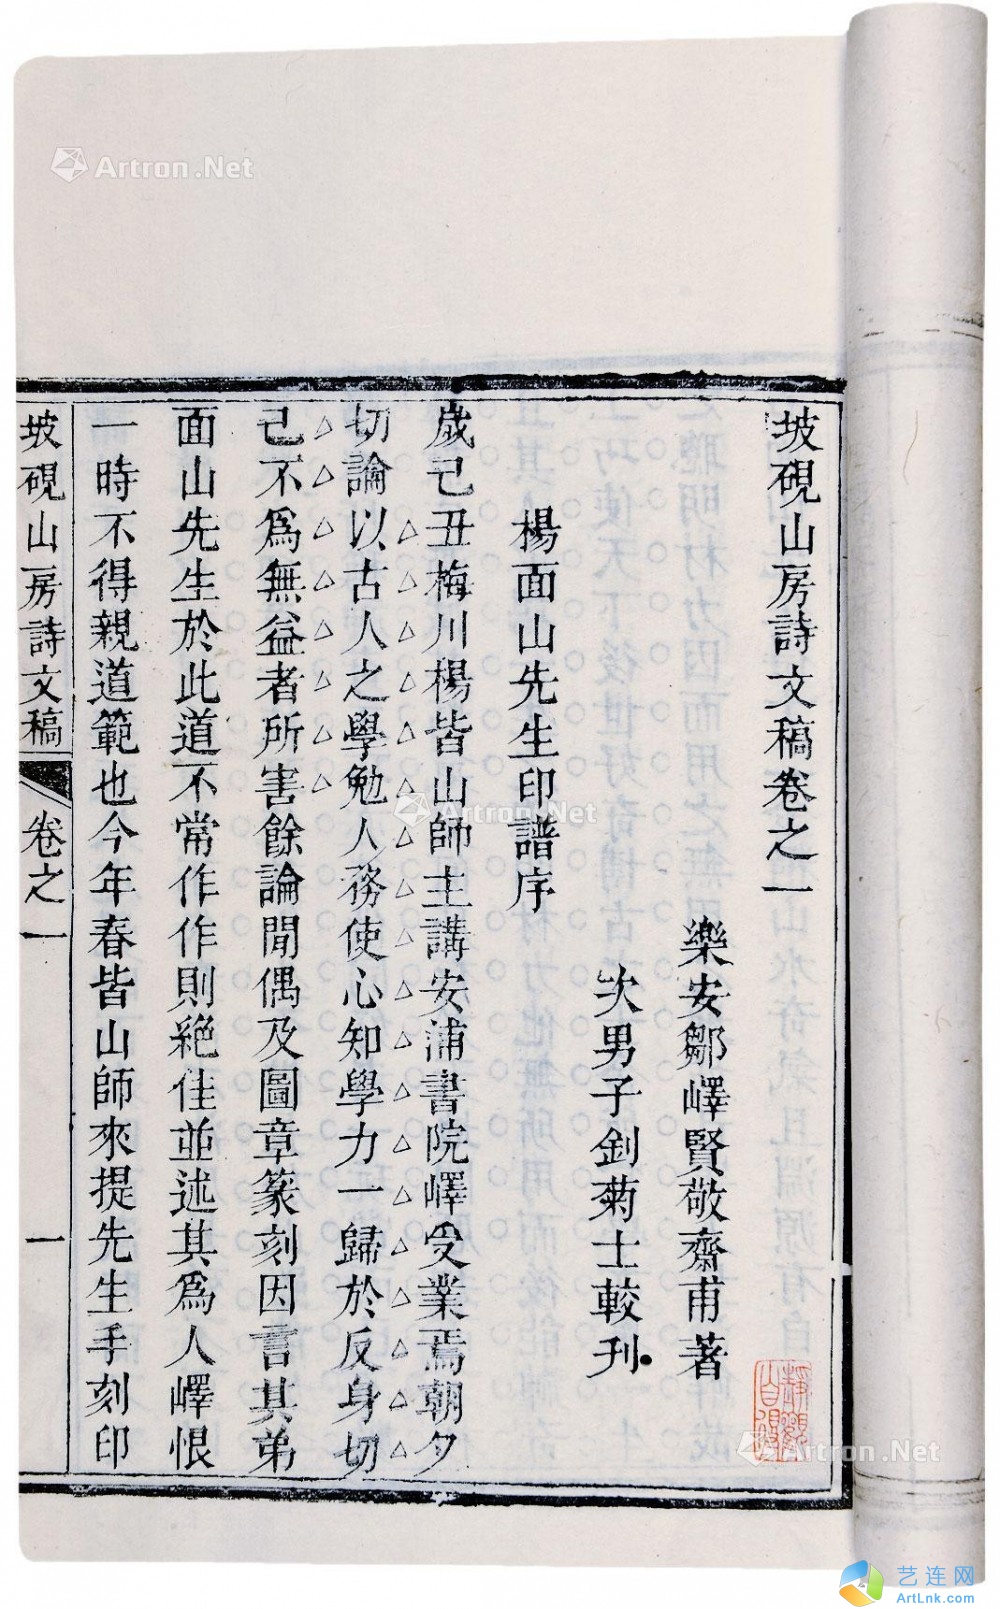 坡硯山房詩文稿卷之一
樂安鄒嶧賢敬齋甫著
次男子釗菊士較刊
楊面山先生印譜序
歲己丑梅川楊皆山師主講安浦書院嶧受業焉朝夕
切論以古人之學勉人務使心知學力一歸於反身切
己不爲無益者所害餘論閒偶及圖章篆刻因言其弟
面山先生於此道不常作作則絕佳並述其爲人嶧恨
一時不得親道範也今年春皆山師來提先生手刻印
坡硯山房詩文稿 卷之一 一
Artron.Net
Artron.Net
Artron.Net
艺连网
ArtLnk.com